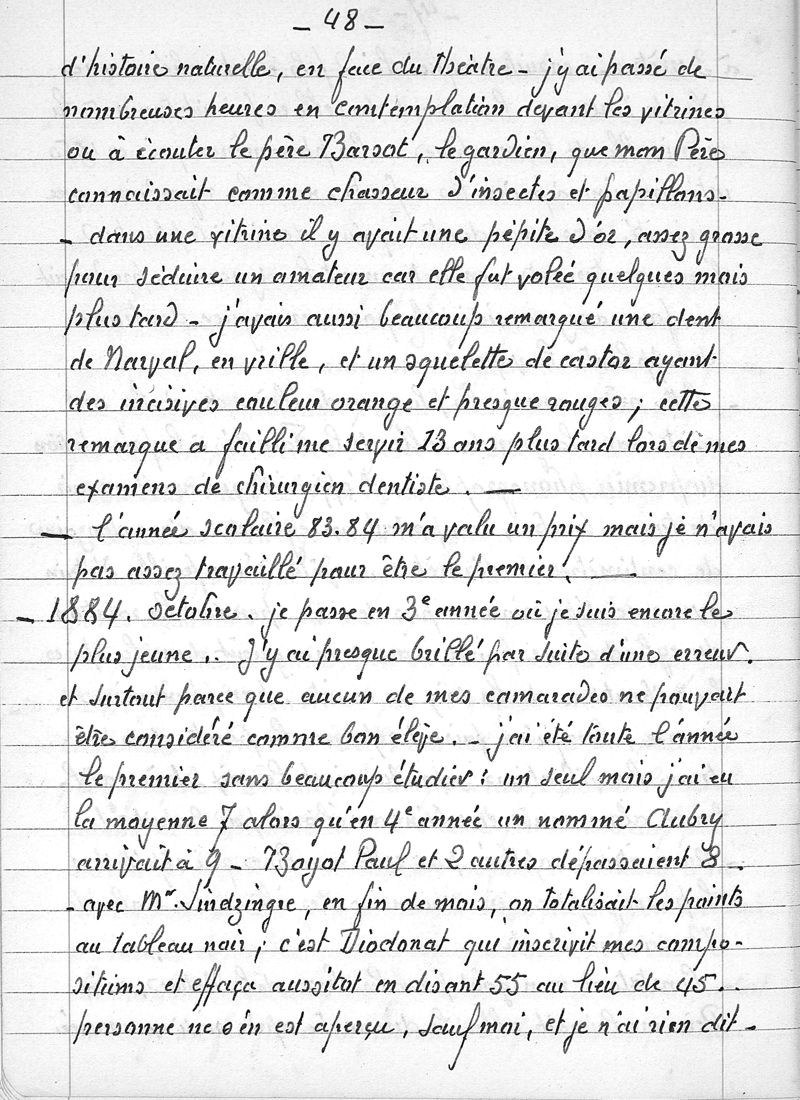 - 48 -
d'histoire naturelle, en face du théâtre - j'y ai passé de
nombreuses heures en contemplation devant les vitrines
ou à écouter le père Barsot, le gardien, que mon Père
connaissait comme chasseur d'insectes et papillons -
- dans une vitrine il y avait une pépite d'or, assez grosse
pour séduire un amateur car elle fut volée quelques mois
plus tard - j'avais aussi beaucoup remarqué une dent
de Narval, en vrille, et un squelette de castor ayant
des incisives couleur orange et presque rouges ; cette
remarque a failli me servir 13 ans plus tard lors de mes
examens de chirurgien dentiste. —
— l'année scolaire 83.84 m'a valu un prix mais je n'avais
pas assez travaillé pour être le premier. —
- 1884. octobre. je passe en 3e année où je suis encore le
plus jeune .. J'y ai presque brillé par suite d'une erreur.
et surtout parce que aucun de mes camarades ne pouvait
être considéré comme bon élève. - j'ai été toute l'année
le premier sans beaucoup étudier : un seul mois j'ai eu
la moyenne 7 alors qu'en 4e année un nommé Aubry
arrivait à 9 - Boyot Paul et 2 autres dépassaient 8 -
- avec Mr. Sindzingre, en fin de mois, on totalisait les points
au tableau noir ; c'est Diodonat qui inscrivit mes compo-
sitions et effaça aussitot en disant 55 au lieu de 45..
personne ne s'en est aperçu, sauf moi, et je n'ai rien dit -